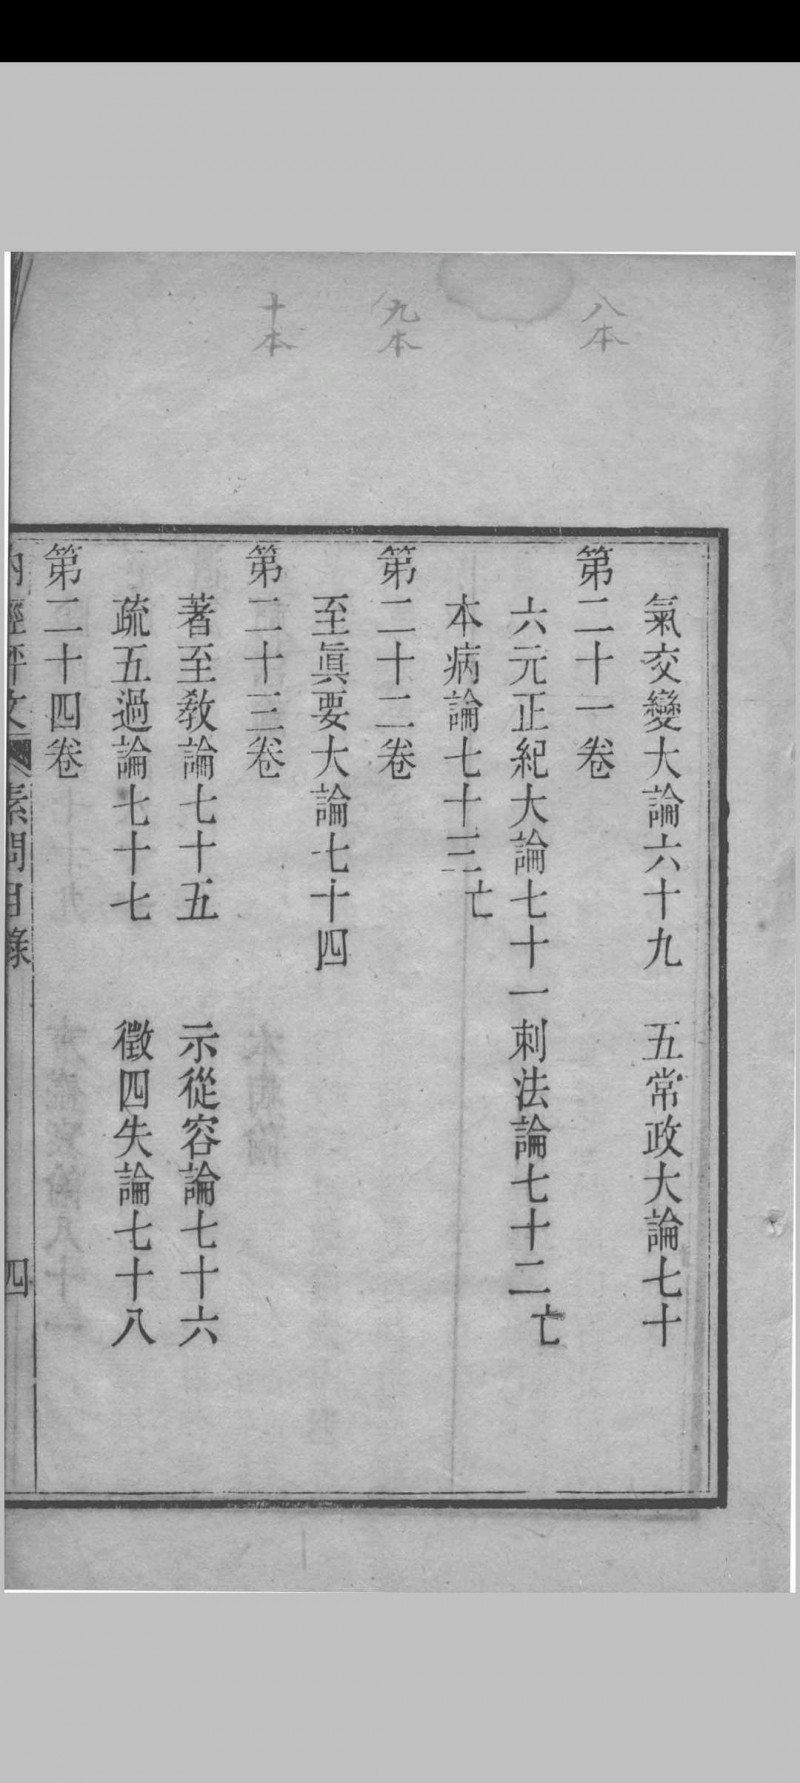 八本
九本
十本
氣交變大論六十九　五常政大論七十
第二十一卷
六元正紀大論七十一刺法論七十二亡
本病論七十三亡
第二十二卷
至眞要大論七十四
第二十三卷
著至教論七十五　示從容論七十六
疏五過論七十七　徵四失論七十八
第二十四卷
內經評文　素問目錄　四